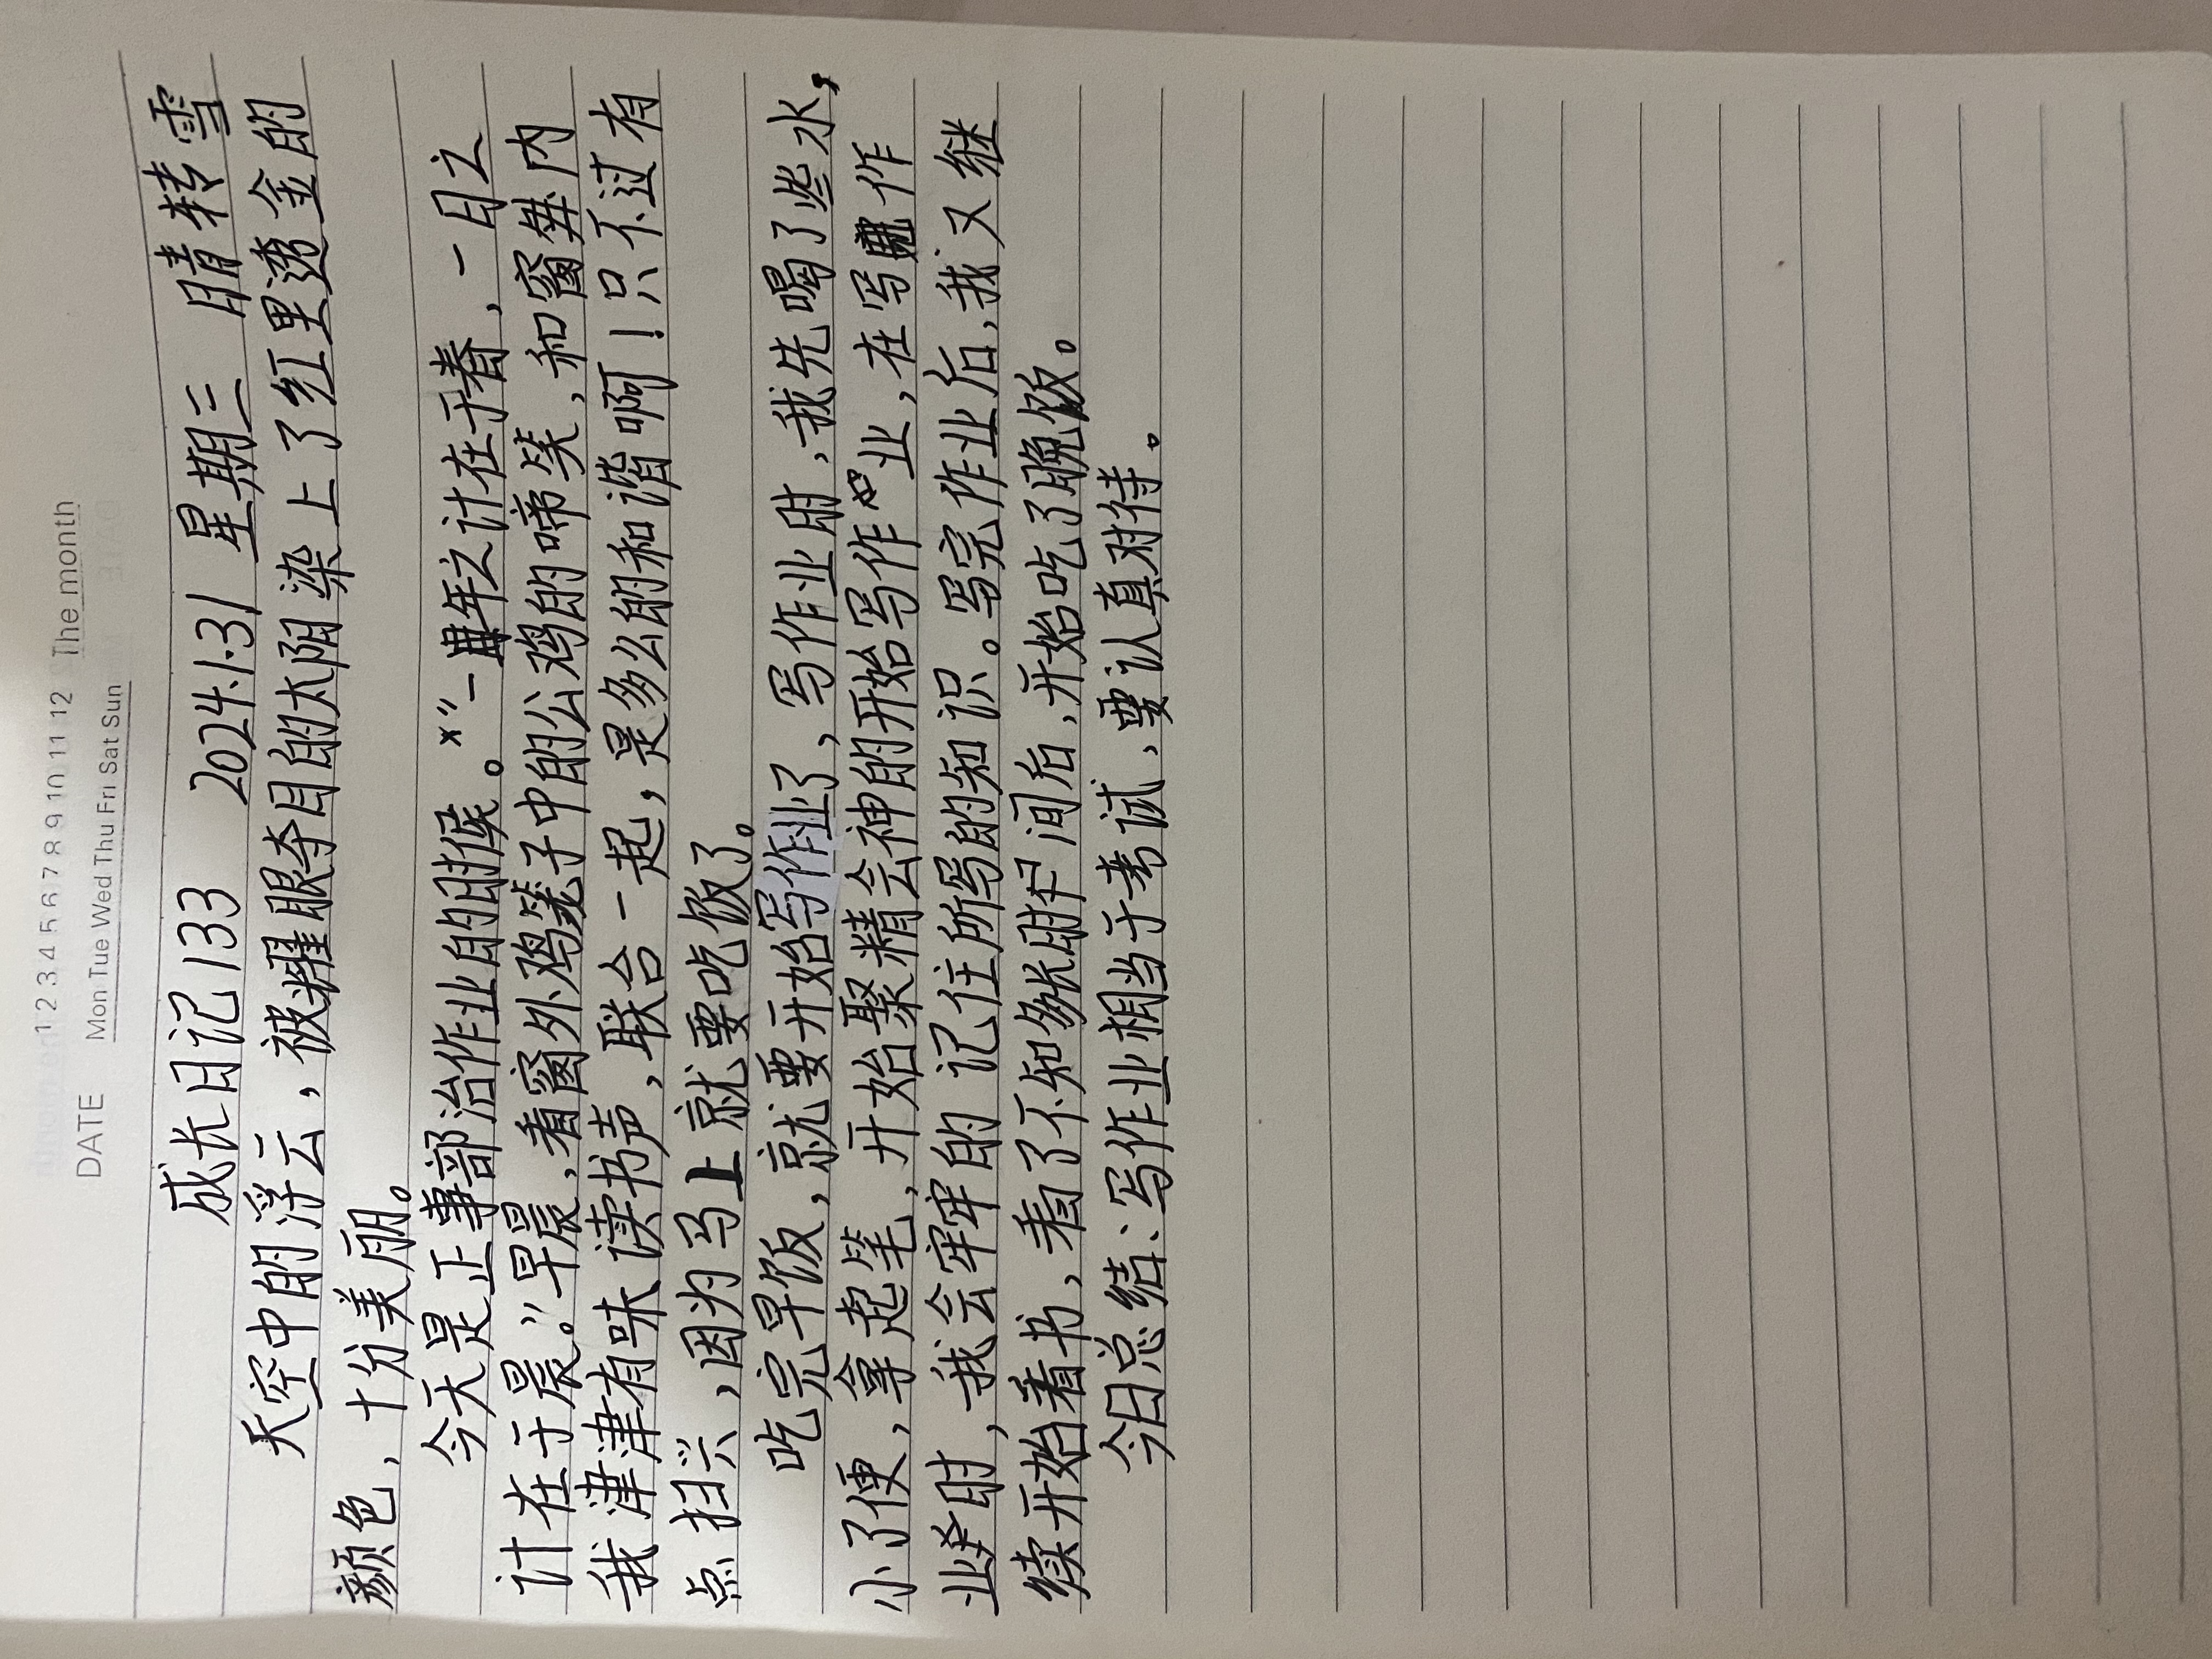 1 2 3 4 5 6 7 8 9 10 11 12 The month
DATE Mon Tue Wed Thu Fri Sat Sun
成长日记133 2024.1.31 星期三 晴转雪
天空中的浮云，被耀眼夺目的太阳染上了红里透金的
颜色，十分美丽。
今天是正事部治作业的时候。“一年之计在于春，一日之
计在于晨。”早晨，看窗外鸡笼子中的公鸡的啼笑，和窗内
我津津有味读书声，联合一起，是多么的和谐啊！只不过有
点扫兴，因为马上就要吃饭了。
吃完早饭，就要开始写作业了，写作业时，我先喝了些水，
小了便，拿起笔，开始聚精会神的开始写作业，在写作
业时，我会牢牢的记住所写的知识。写完作业后，我又继
续开始看书，看了不知多长时间后，开始吃了晚饭。
今日总结：写作业相当于考试，要认真对待。